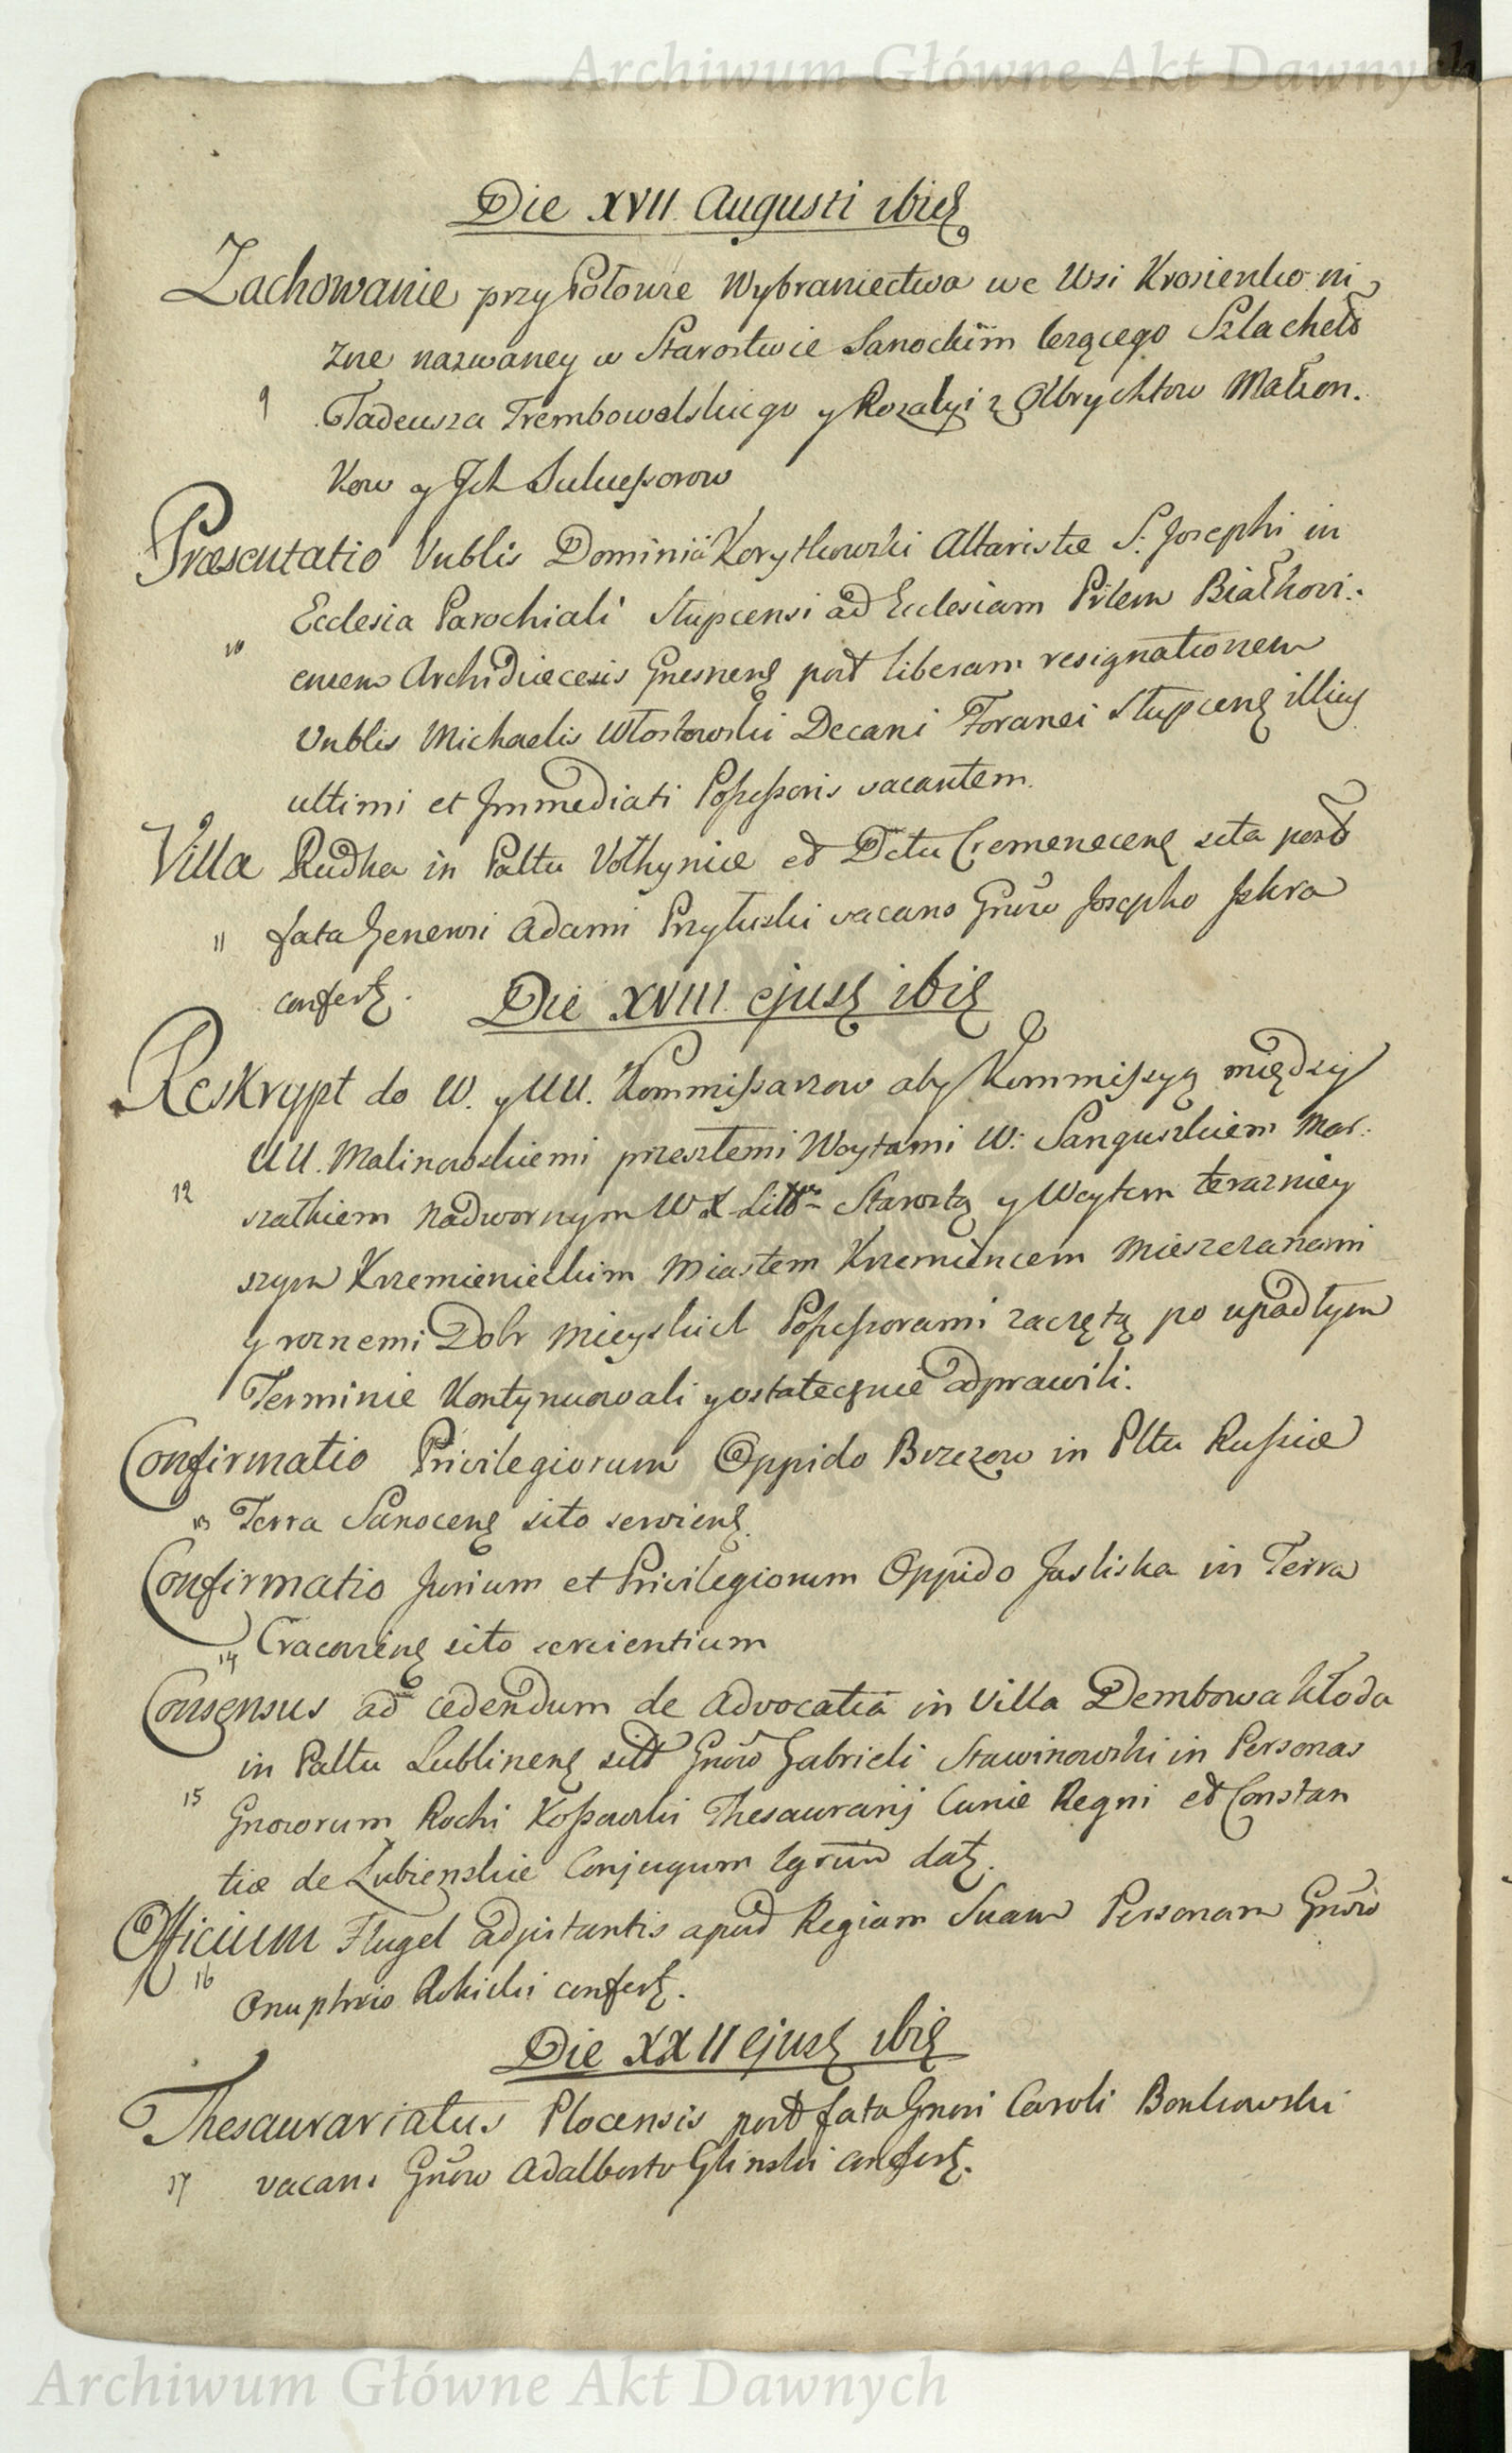 Archiwum Główne Akt Dawnych
Die XVII. Augusti ibid
Zachowanie przy Połowie Wybraniectwa we Wsi Krosienko ni
żne nazwaney w Starostwie Sanockim leżącego Szlachet
9 Tadeusza Trembowelskiego y Rozalyi z Olbrychtow Małżon.
kow y Jch Sukcessorow
Præsentatio Vnblis Dominici Korytkowski Altaristæ S. Josephi in
Ecclesia Parochiali Słupcensi ad Ecclesiam Prlem Białkovi.
10
censem Archidiecesis Gnesnens post liberam resignationem
Vnblis Michaelis Włostowski Decani Foranei Słupcens illius
ultimi et Immediati Possessoris vacantem.
Villa Rudka in Paltu Volhyniæ et Dctu Cremenecens sita post
11 fata Generosi Adami Przyłuski vacans Gnroso Josepho Jskra
confert. Die XVIII. ejusd ibid
Reskrypt do W. y UU. Kommissarzow aby Kommissyą między
UU. Malinowskiemi przeszłemi Woytami W: Sanguszkiem Mar:
12 szałkiem Nadwornym W X Litt Starostą y Woytem teraźniey
szym Krzemienieckim Miastem Krzemieńcem Mieszczanami
y roznemi Dobr Mieyskich Possessorami zaczętą po upadłym
Terminie kontynuowali y ostatecznie odprawili.
Confirmatio Privilegiorum Oppido Brzezow in Pltu Russiæ
13 Terra Sanocens sito serviens.
Confirmatio Jurium et Privilegiorum Oppido Jasliska in Terra
14 Cracoviens sito servientium
Consensus ad cedendum de Advocatia in Villa Dembowa Kłoda
in Paltu Lublinens sitt Gnroso Gabrieli Stawinowski in Personas
15 Gnrosorum Rochi Kossowski Thesaurarij Curiæ Regni et Constan
tiæ de Łubienskie Conjugum Igrum dat.
Officium Flugel Adjutantis apud Regiam Suam Personam Gnroso
16 Onuphrio Rokicki confert.
Die XXII ejusd ibid
Thesaurariatus Plocensis post fata Gnrosi Caroli Bonkowski
17 vacans Gnroso Adalberto Glinski confert.
Archiwum Główne Akt Dawnych